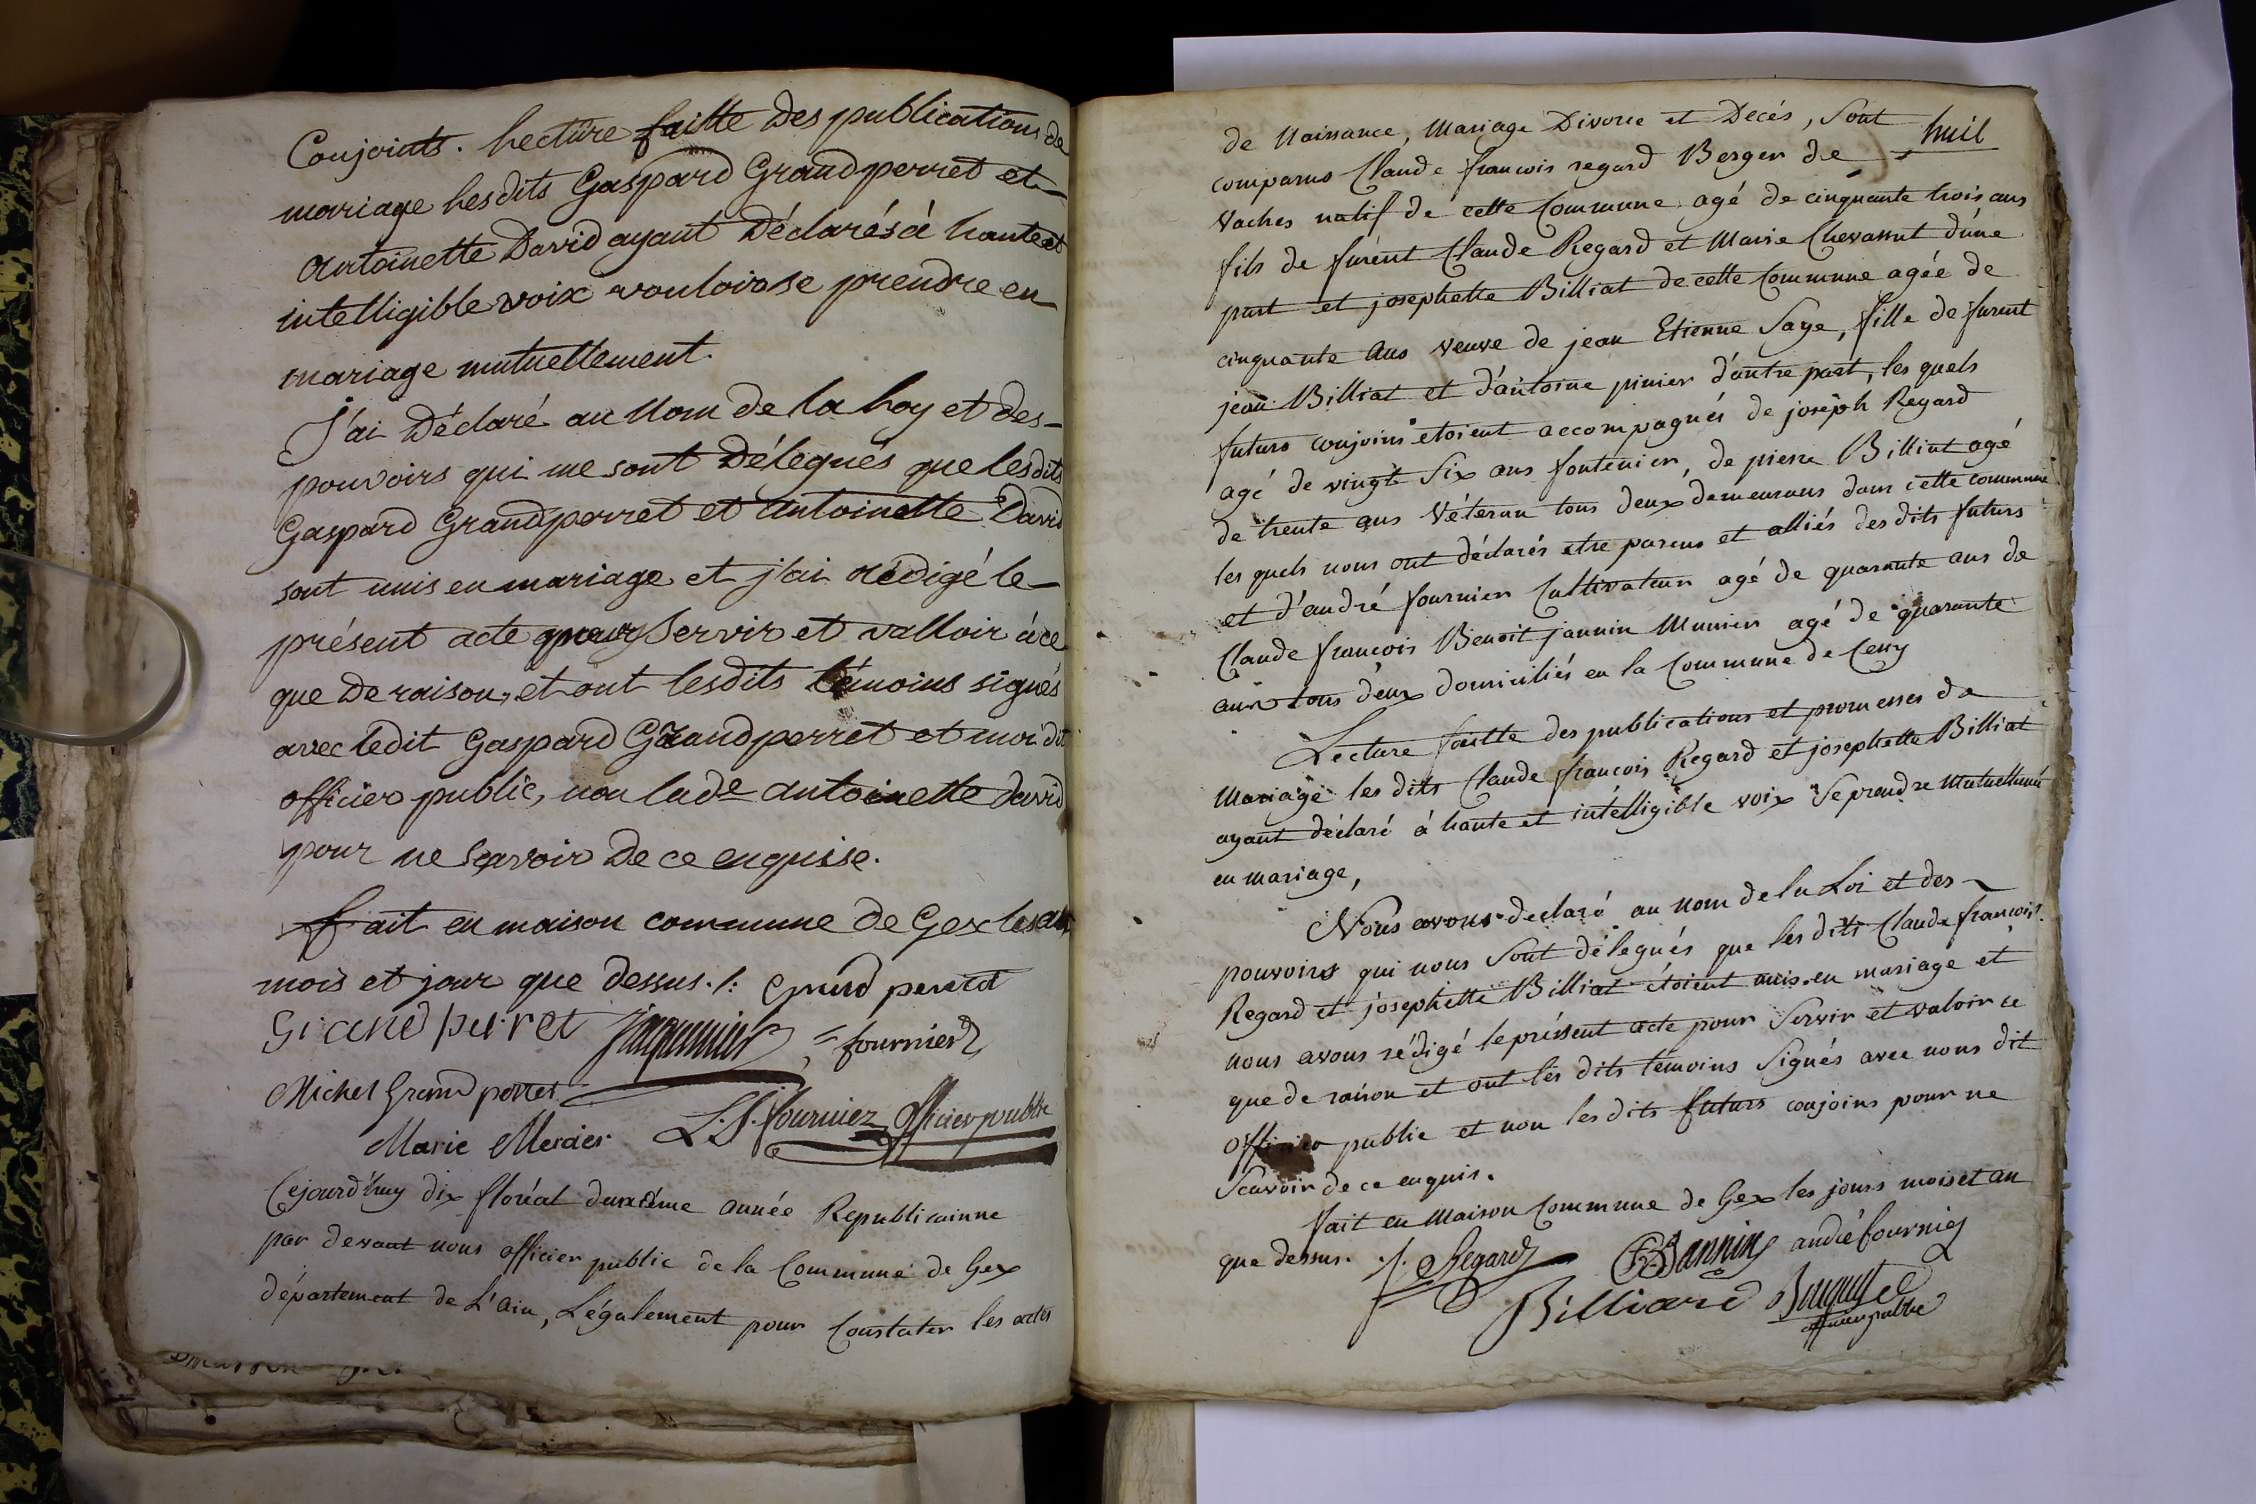 Conjoints. Lecture faitte Des publications de
mariage Lesdits Gaspard Grandperret et
Antoinette David ayant Déclarés à haute et
intelligible voix vouloir se prendre en
mariage mutuellement.
J'ai Déclaré au Nom de la Loy et des
pouvoirs qui me sont Délegués que lesdits
Gaspard Grandperret et Antoinette David
sont unis en mariage et j'ai rédigé le
présent acte pour Servir et valloir à ce
que De raison, et ont lesdits témoins signés
avec ledit Gaspard Grandperret et moi dit
officier public, non lade Antoinette David
pour ne Sçavoir De ce enquise.
fait en maison commune De Gex les an
mois et jour que dessus ./. Grand perret
Grand perret Jaquemier fournier
Michel Grand perret
Marie Mercier L.S. fournier officier public
Cejourd'huy dix floréal deuxième année Republicainne
par devant nous officier public de la Commune de Gex
département de L'ain, Légalement pour Constater les actes
de Naissance, Mariage Divorce et Décés, Sont
huit
comparus Claude françois regard Berger de
Vaches natif de cette Commune agé de cinquante trois ans
fils de furent Claude Regard et Marie Chevassut d'une
part et josephette Billiat de cette Commune agée de
cinquante ans veuve de jean Etienne Saye, fille de furent
jean Billiat et d'antoine pinier d'autre part, les quels
futurs conjoins etoient accompagnés de joseph Regard
agé de vingt Six ans fontenier, de pierre Billiat agé
de trente ans Véteran tous deux demeurans dans cette commune
les quels nous ont déclarés etre parens et alliés des dits futurs
et d'andré fournier Cultivateur agé de quarante ans de
Claude françois Benoit jannin Munier agé de quarante
ans tous deux domiciliés en la Commune de Cessy
Lecture faitte des publications et promesses de
Mariage les dits Claude françois Regard et josephette Billiat
ayant déclaré à haute et intélligible voix Se prendre Mutuellement
en mariage,
Nous avons declaré au nom de la Loi et des
pouvoirs qui nous Sont délegués que les dits Claude françois
Regard et josephette Billiat étoient unis en mariage et
nous avons rédigé le préssent acte pour Servir et valoir ce
que de raison et ont les dits témoins Signés avec nous dit
officier public et non les dits futurs conjoins pour ne
Scavoir de ce enquis.
fait en Maison Commune de Gex les jours mois et an
que dessus. ./. Regard CFB Jannin andré fournier
Billiard
officier public